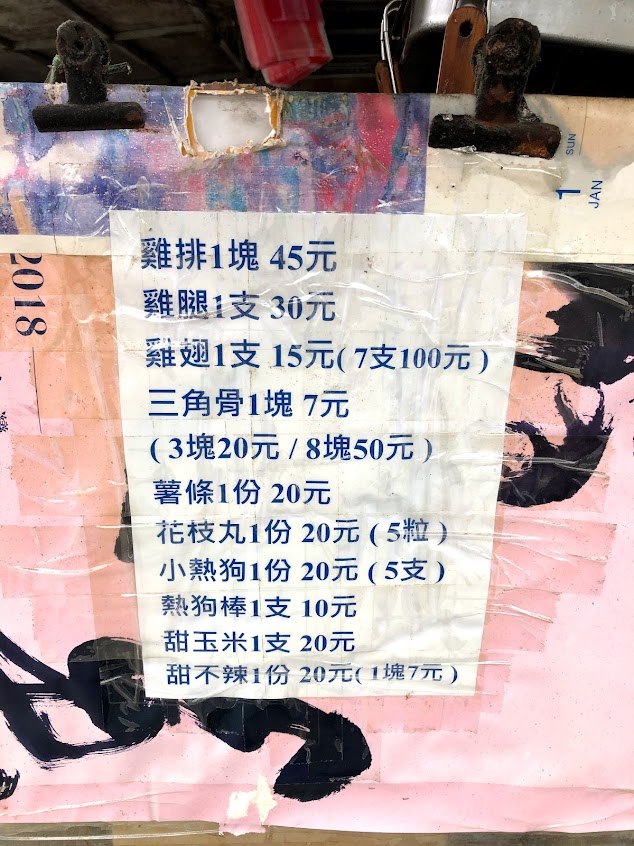 1
SUN
JAN
2018
雞排1塊 45元
雞腿1支 30元
雞翅1支 15元( 7支100元 )
三角骨1塊 7元
( 3塊20元 / 8塊50元 )
薯條1份 20元
花枝丸1份 20元 ( 5粒 )
小熱狗1份 20元 ( 5支 )
熱狗棒1支 10元
甜玉米1支 20元
甜不辣1份 20元( 1塊7元 )